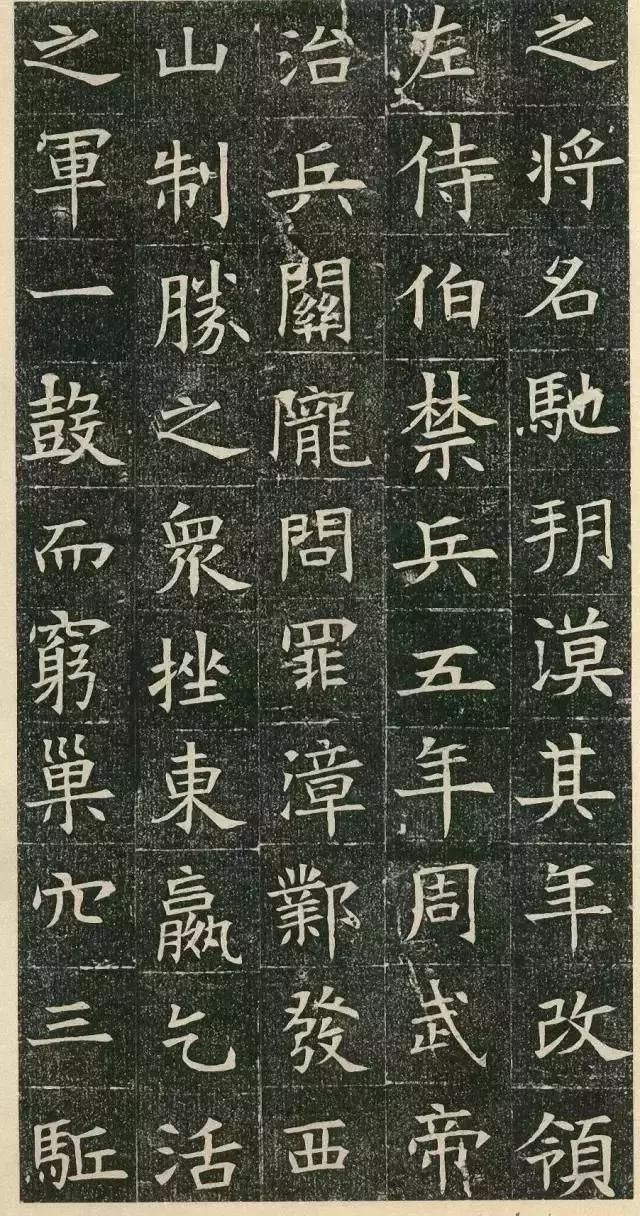 之将名馳朔漠其年改領
左侍伯禁兵五年周武帝
治兵關隴問罪漳鄴發西
山制勝之眾挫東嬴乞活
之軍一鼓而窮巢穴三駈